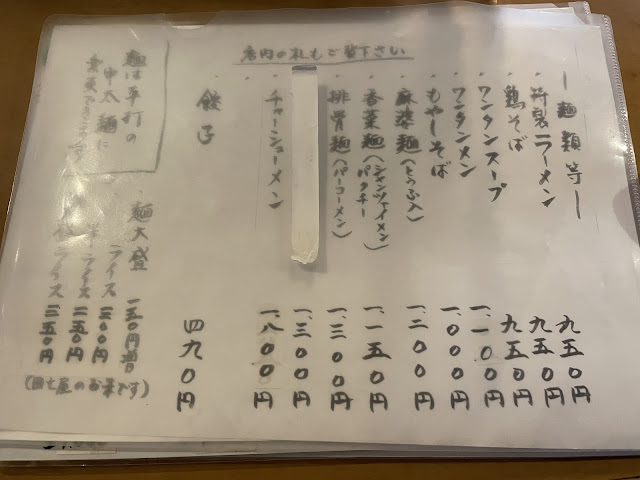 店内の札もご覧下さい
ー麺類等ー
特製ラーメン 九五〇円
鶏そば 九五〇円
ワンタンスープ 九五〇円
ワンタンメン 一、一〇〇円
もやしそば 一、〇〇〇円
麻婆麺(とうふ入) 一、二〇〇円
香菜麺(シャンツァイメン)パクチー 一、一五〇円
排骨麺(パーコーメン) 一、三〇〇円
一、三〇〇円
チャーシューメン 一、八〇〇円
餃子 四九〇円
麺は平打の
中太麺に
麺大盛 一五〇円増
ライス 三〇〇円
半ライス 二五〇円
ライス 三五〇円
のお米です)